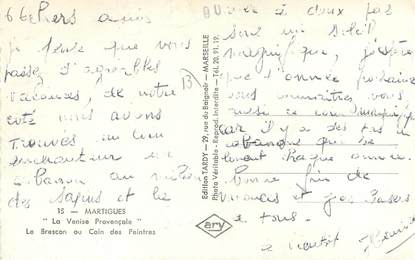 66 Chers amis
je pense que vous
passez d'agréables
vacances, de notre
côté nous avons
trouvés un coin
enchanteur un
cabanon au milieu
des sapins et la
15 - MARTIGUES
" La Venise Provençale "
Le Brescon au Coin des Peintres
Edition TARDY - 29, rue du Baignoir - MARSEILLE
Photo Véritable - Reprod. Interdite - Tél. 20.91.19
13
ary
à deux pas
sous un soleil
magnifique, j'espère
que l'année prochaine
vous
ce
car il y a des
cabanons que se
louent chaque année.
Bonne fin de
vacances et gros baisers
à tous.
à bientôt